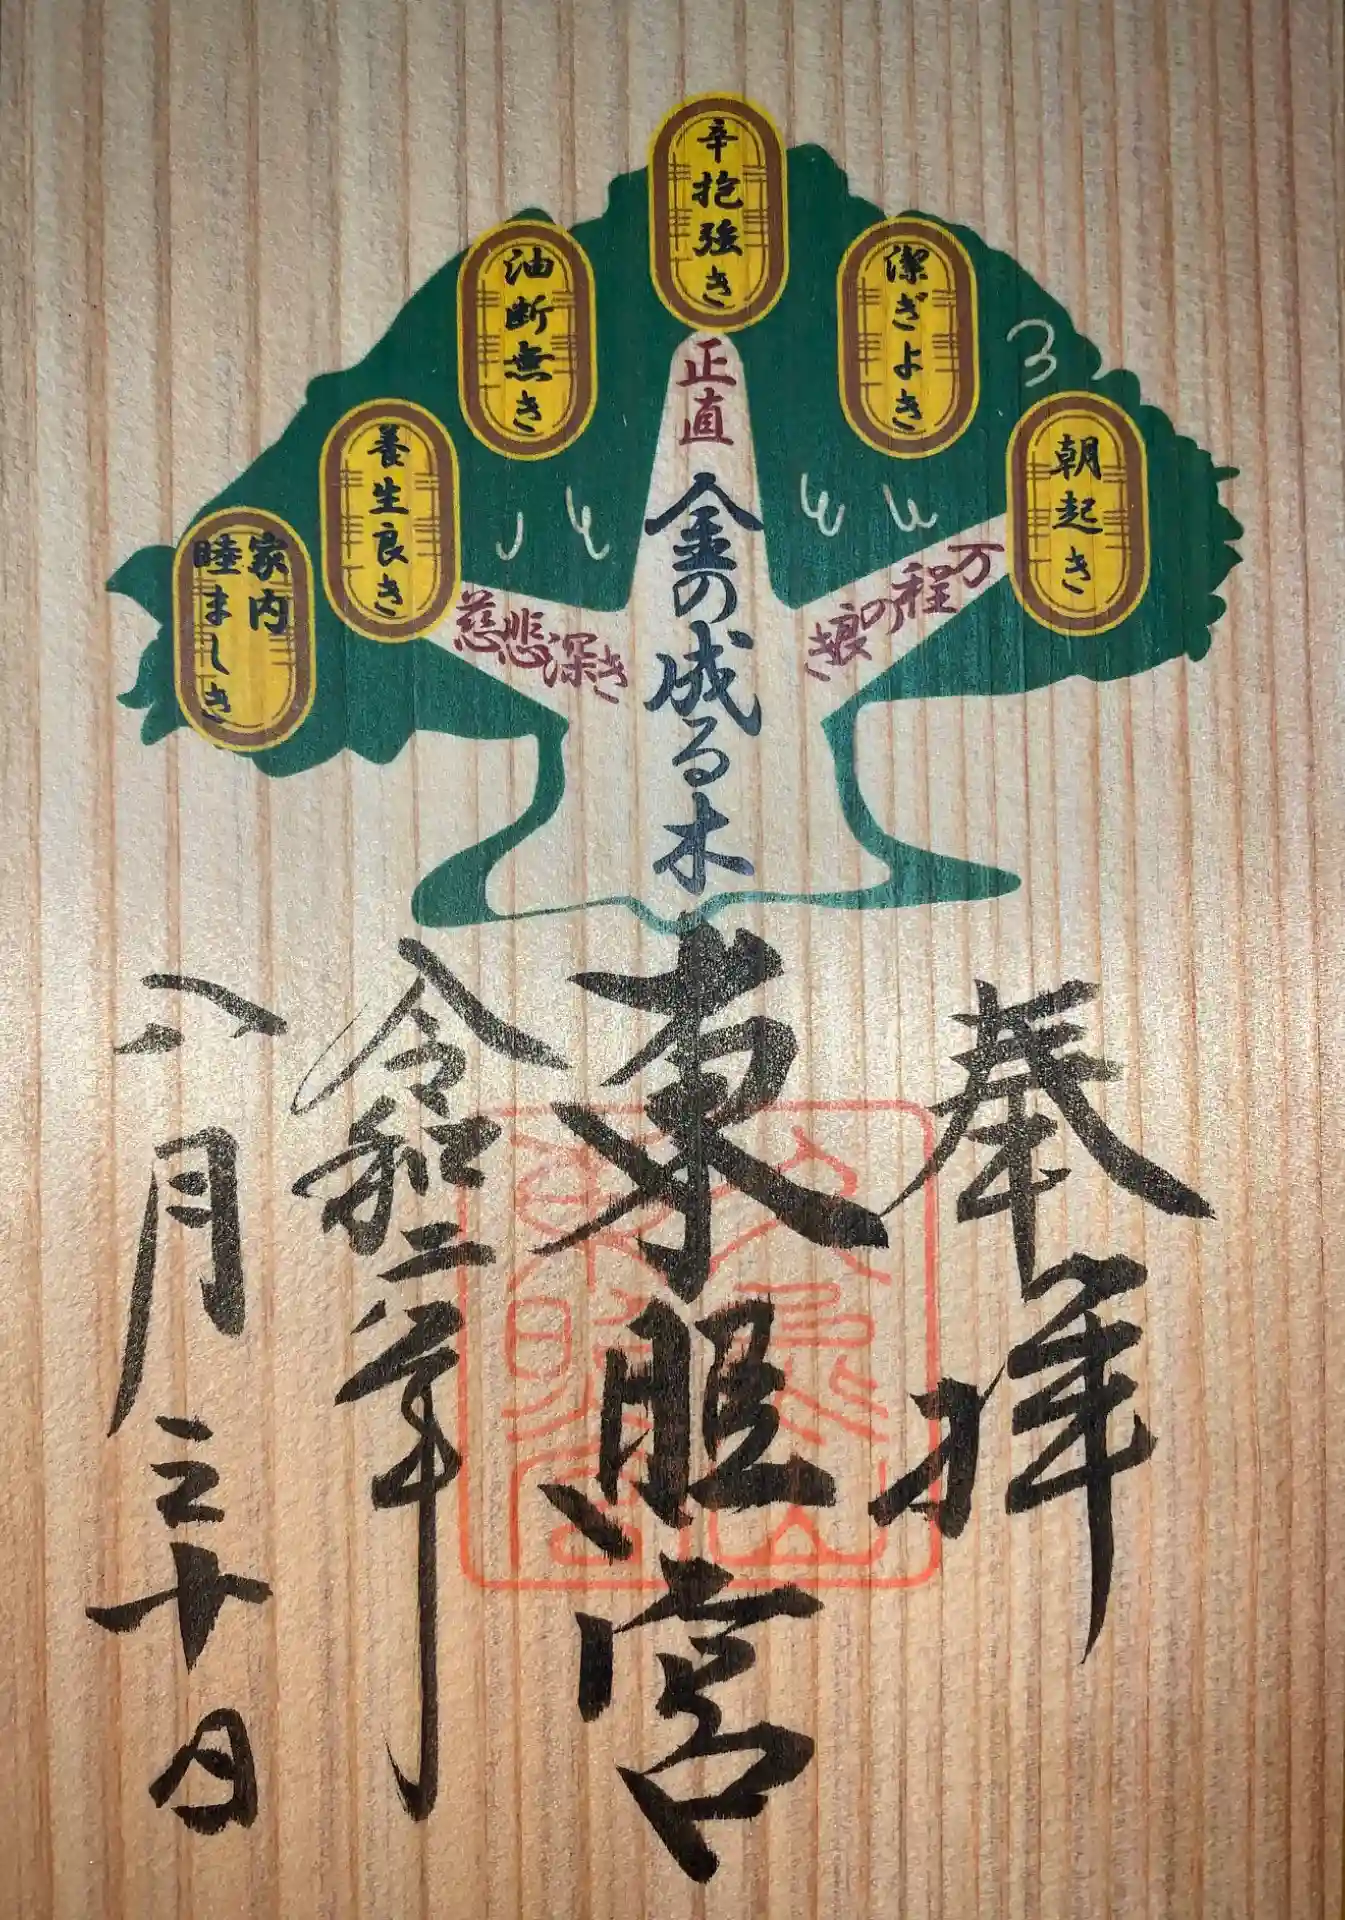 朝起き
潔ぎよき
辛抱強き
油断無き
養生良き
家内
睦ましき
万程の狼き
正直
慈悲深き
金の成る木
奉拝
東照宮
令和二年
八月三十日